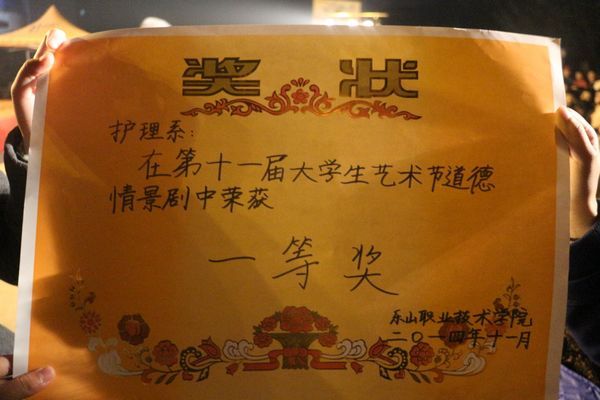 奖状
护理系:
在第十一届大学生艺术节道德
情景剧中荣获
一等奖
乐山职业技术学院
二〇一四年十一月